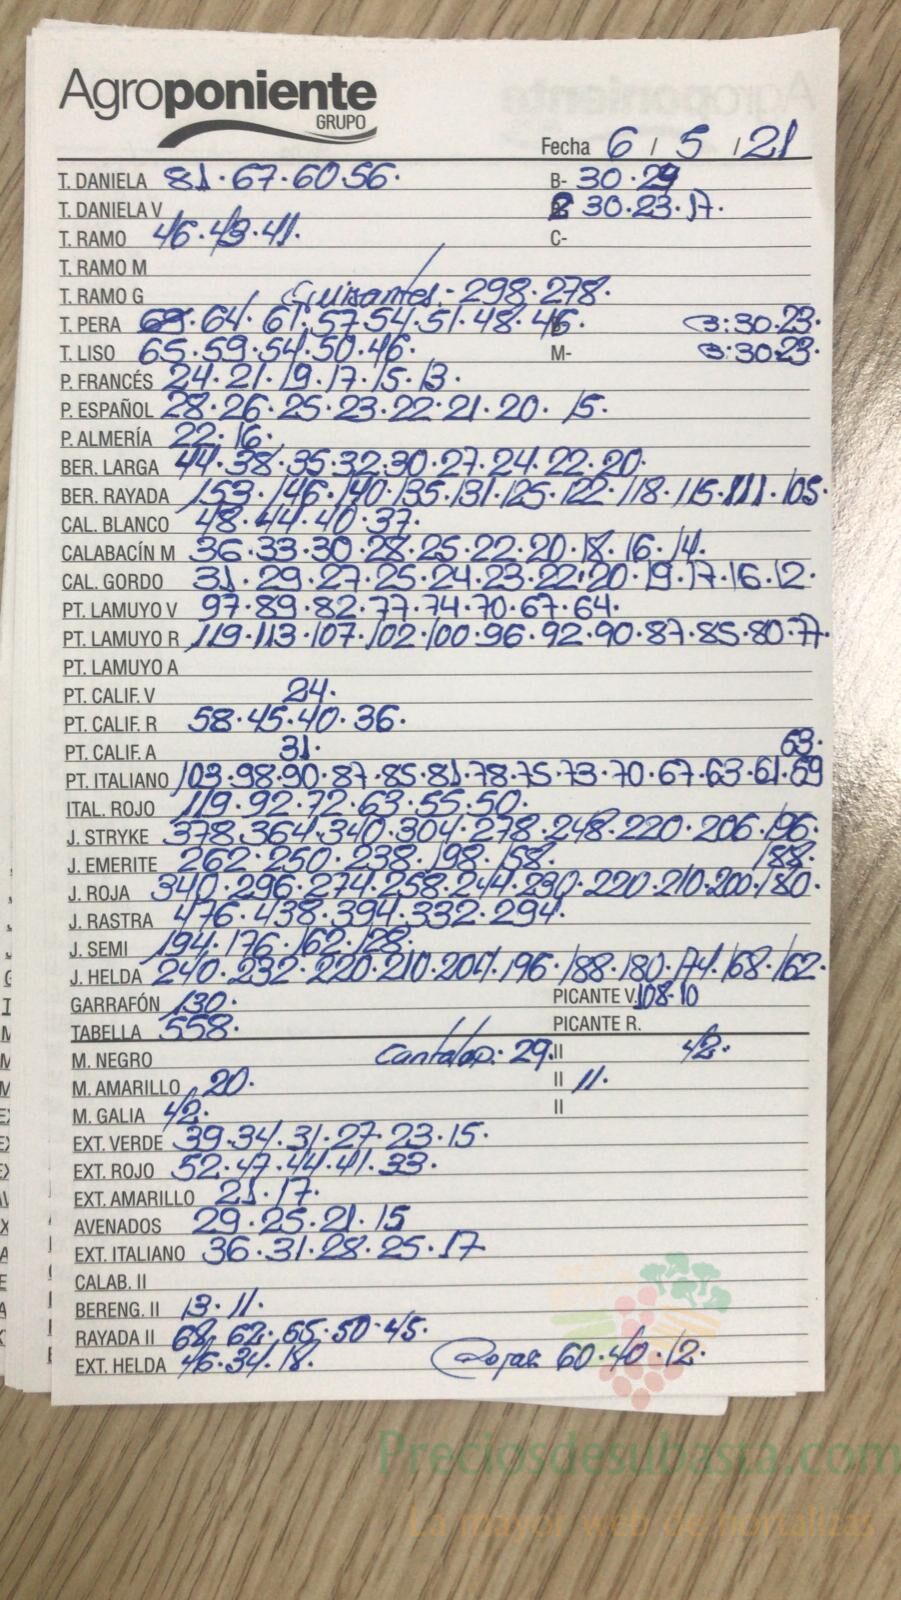 Agroponiente
GRUPO
Fecha 6 / 5 / 21
T. DANIELA 81·67·60·56· B- 30·29
T. DANIELA V 30·23·17·
T. RAMO 46·43·41· C-
T. RAMO M
T. RAMO G Guisantes:- 298·278·
T. PERA 69·64·61·57·54·51·48·46· B:30·23·
T. LISO 65·59·54·50·46· M- B:30·23·
P. FRANCÉS 24·21·19·17·15·13·
P. ESPAÑOL 28·26·25·23·22·21·20· 15·
P. ALMERÍA 22·16·
BER. LARGA 44·38·35·32·30·27·24·22·20·
BER. RAYADA 153·146·140·135·131·125·122·118·115·111·105·
CAL. BLANCO 48·44·40·37·
CALABACÍN M 36·33·30·28·25·22·20·18·16·14·
CAL. GORDO 31·29·27·25·24·23·22·20·19·17·16·12·
PT. LAMUYO V 97·89·82·77·74·70·67·64·
PT. LAMUYO R 119·113·107·102·100·96·92·90·87·85·80·77·
PT. LAMUYO A
PT. CALIF. V 24·
PT. CALIF. R 58·45·40·36·
PT. CALIF. A 31· 63·
PT. ITALIANO 103·98·90·87·85·81·78·75·73·70·67·63·61·59
ITAL. ROJO 119·92·72·63·55·50·
J. STRYKE 378·364·340·304·278·248·220·206·196·
J. EMERITE 262·250·238·198·158· 188·
J. ROJA 340·296·274·258·244·230·220·210·200·180·
J. RASTRA 476·438·394·332·294·
J. SEMI 194·176·162·128·
J. HELDA 240·232·220·210·204·196·188·180·174·168·162·
GARRAFÓN 130· PICANTE V. 108·10
TABELLA 558· PICANTE R.
M. NEGRO Cantalop: 29· II 42·
M. AMARILLO 20· II 11·
M. GALIA 42· II
EXT. VERDE 39·34·31·27·23·15·
EXT. ROJO 52·47·44·41·33·
EXT. AMARILLO 21·17·
AVENADOS 29·25·21·15
EXT. ITALIANO 36·31·28·25·17
CALAB. II
BERENG. II 13·11·
RAYADA II 68·62·55·50·45·
EXT. HELDA 46·34·18· Rojas: 60·40·12·
Preciosdesubasta.com
La mayor web de hortalizas